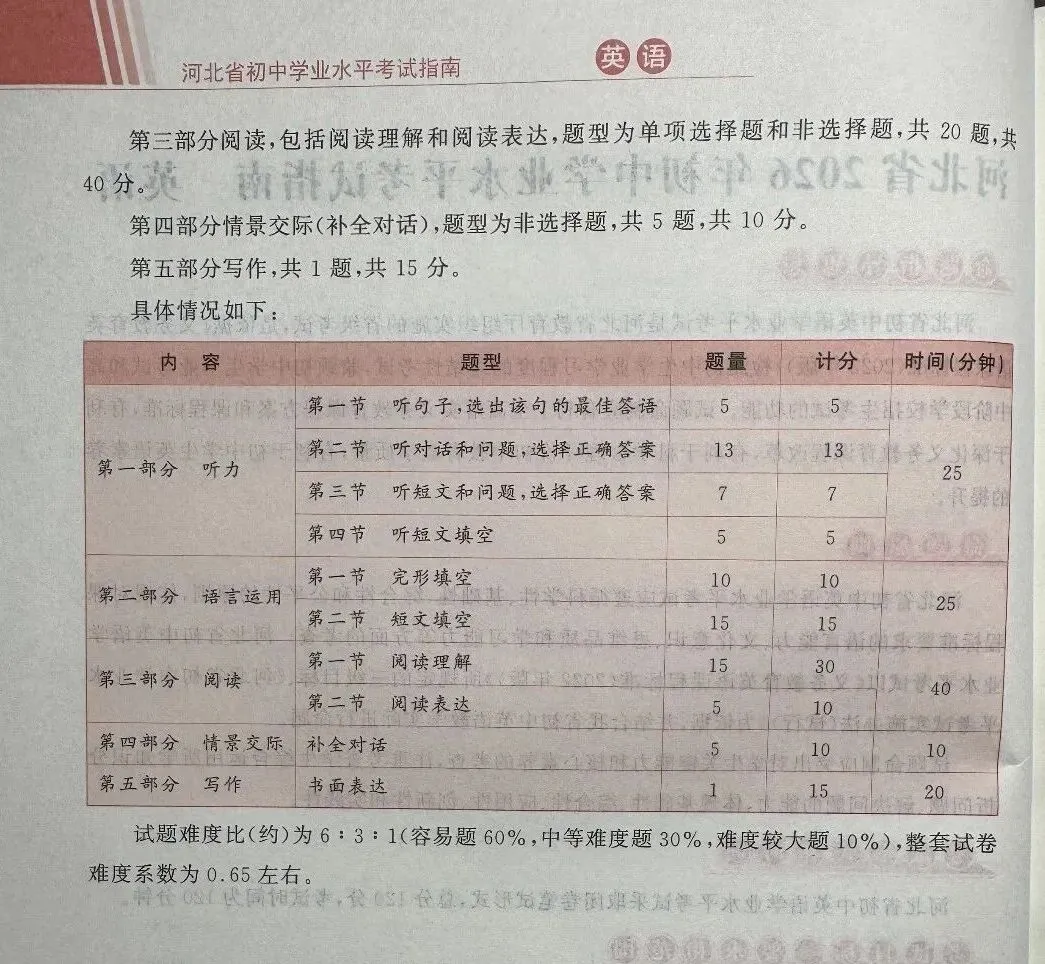 河北省初中学业水平考试指南 英语
第三部分阅读,包括阅读理解和阅读表达,题型为单项选择题和非选择题,共 20 题,共
40 分。
第四部分情景交际(补全对话),题型为非选择题,共 5 题,共 10 分。
第五部分写作,共 1 题,共 15 分。
具体情况如下:
内 容 题型 题量 计分 时间(分钟)
第一部分 听力 第一节 听句子,选出该句的最佳答语 5 5 25
第二节 听对话和问题,选择正确答案 13 13
第三节 听短文和问题,选择正确答案 7 7
第四节 听短文填空 5 5
第二部分 语言运用 第一节 完形填空 10 10 25
第二节 短文填空 15 15
第三部分 阅读 第一节 阅读理解 15 30 40
第二节 阅读表达 5 10
第四部分 情景交际 补全对话 5 10 10
第五部分 写作 书面表达 1 15 20
试题难度比(约)为 6∶3∶1(容易题 60%,中等难度题 30%,难度较大题 10%),整套试卷
难度系数为 0.65 左右。